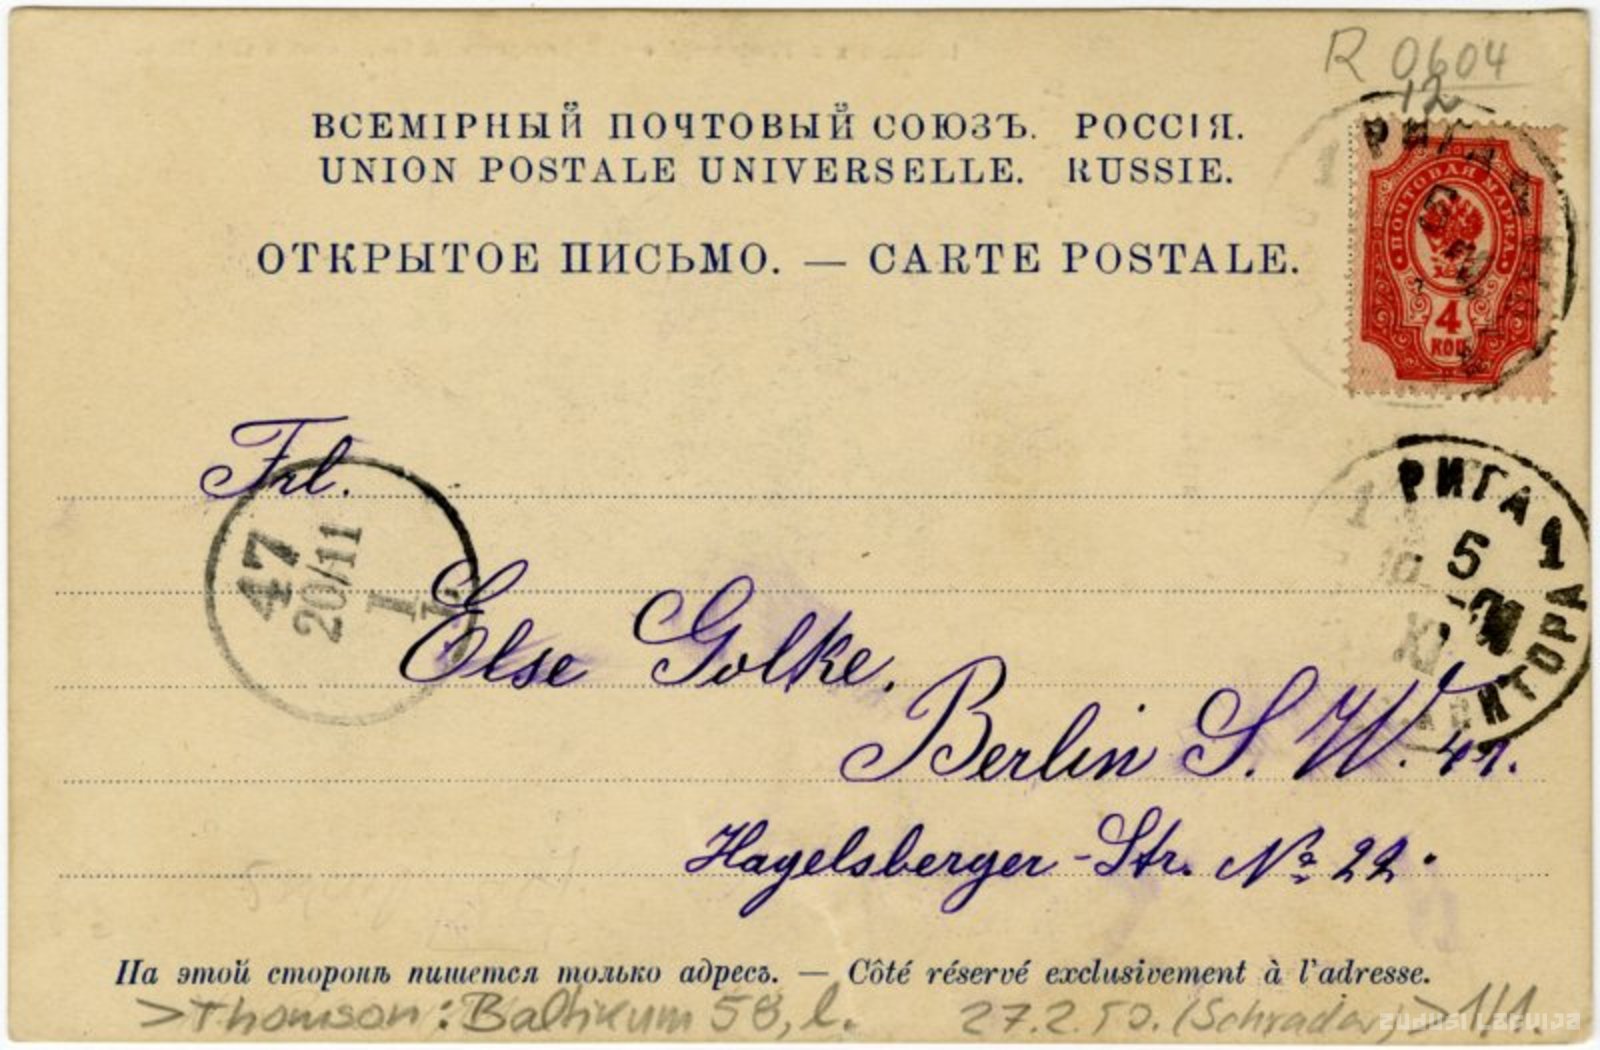 R 0604
12
ВСЕМІРНЫЙ ПОЧТОВЫЙ СОЮЗЪ. РОССІЯ.
UNION POSTALE UNIVERSELLE. RUSSIE.
ОТКРЫТОЕ ПИСЬМО. — CARTE POSTALE.
РИГА
ПОЧТОВАЯ МАРКА
4
КОП
Frl.
47
20/11
1
РИГА 1
5
Else Golke.
Berlin S. W. 47.
Hagelsberger-Str. № 22.
На этой сторонѣ пишется только адресъ. — Côté réservé exclusivement à l'adresse.
>Thomson: Baltikum 58, l. 27.2.50. (Schrader) > 1/1.
zudusi latvija